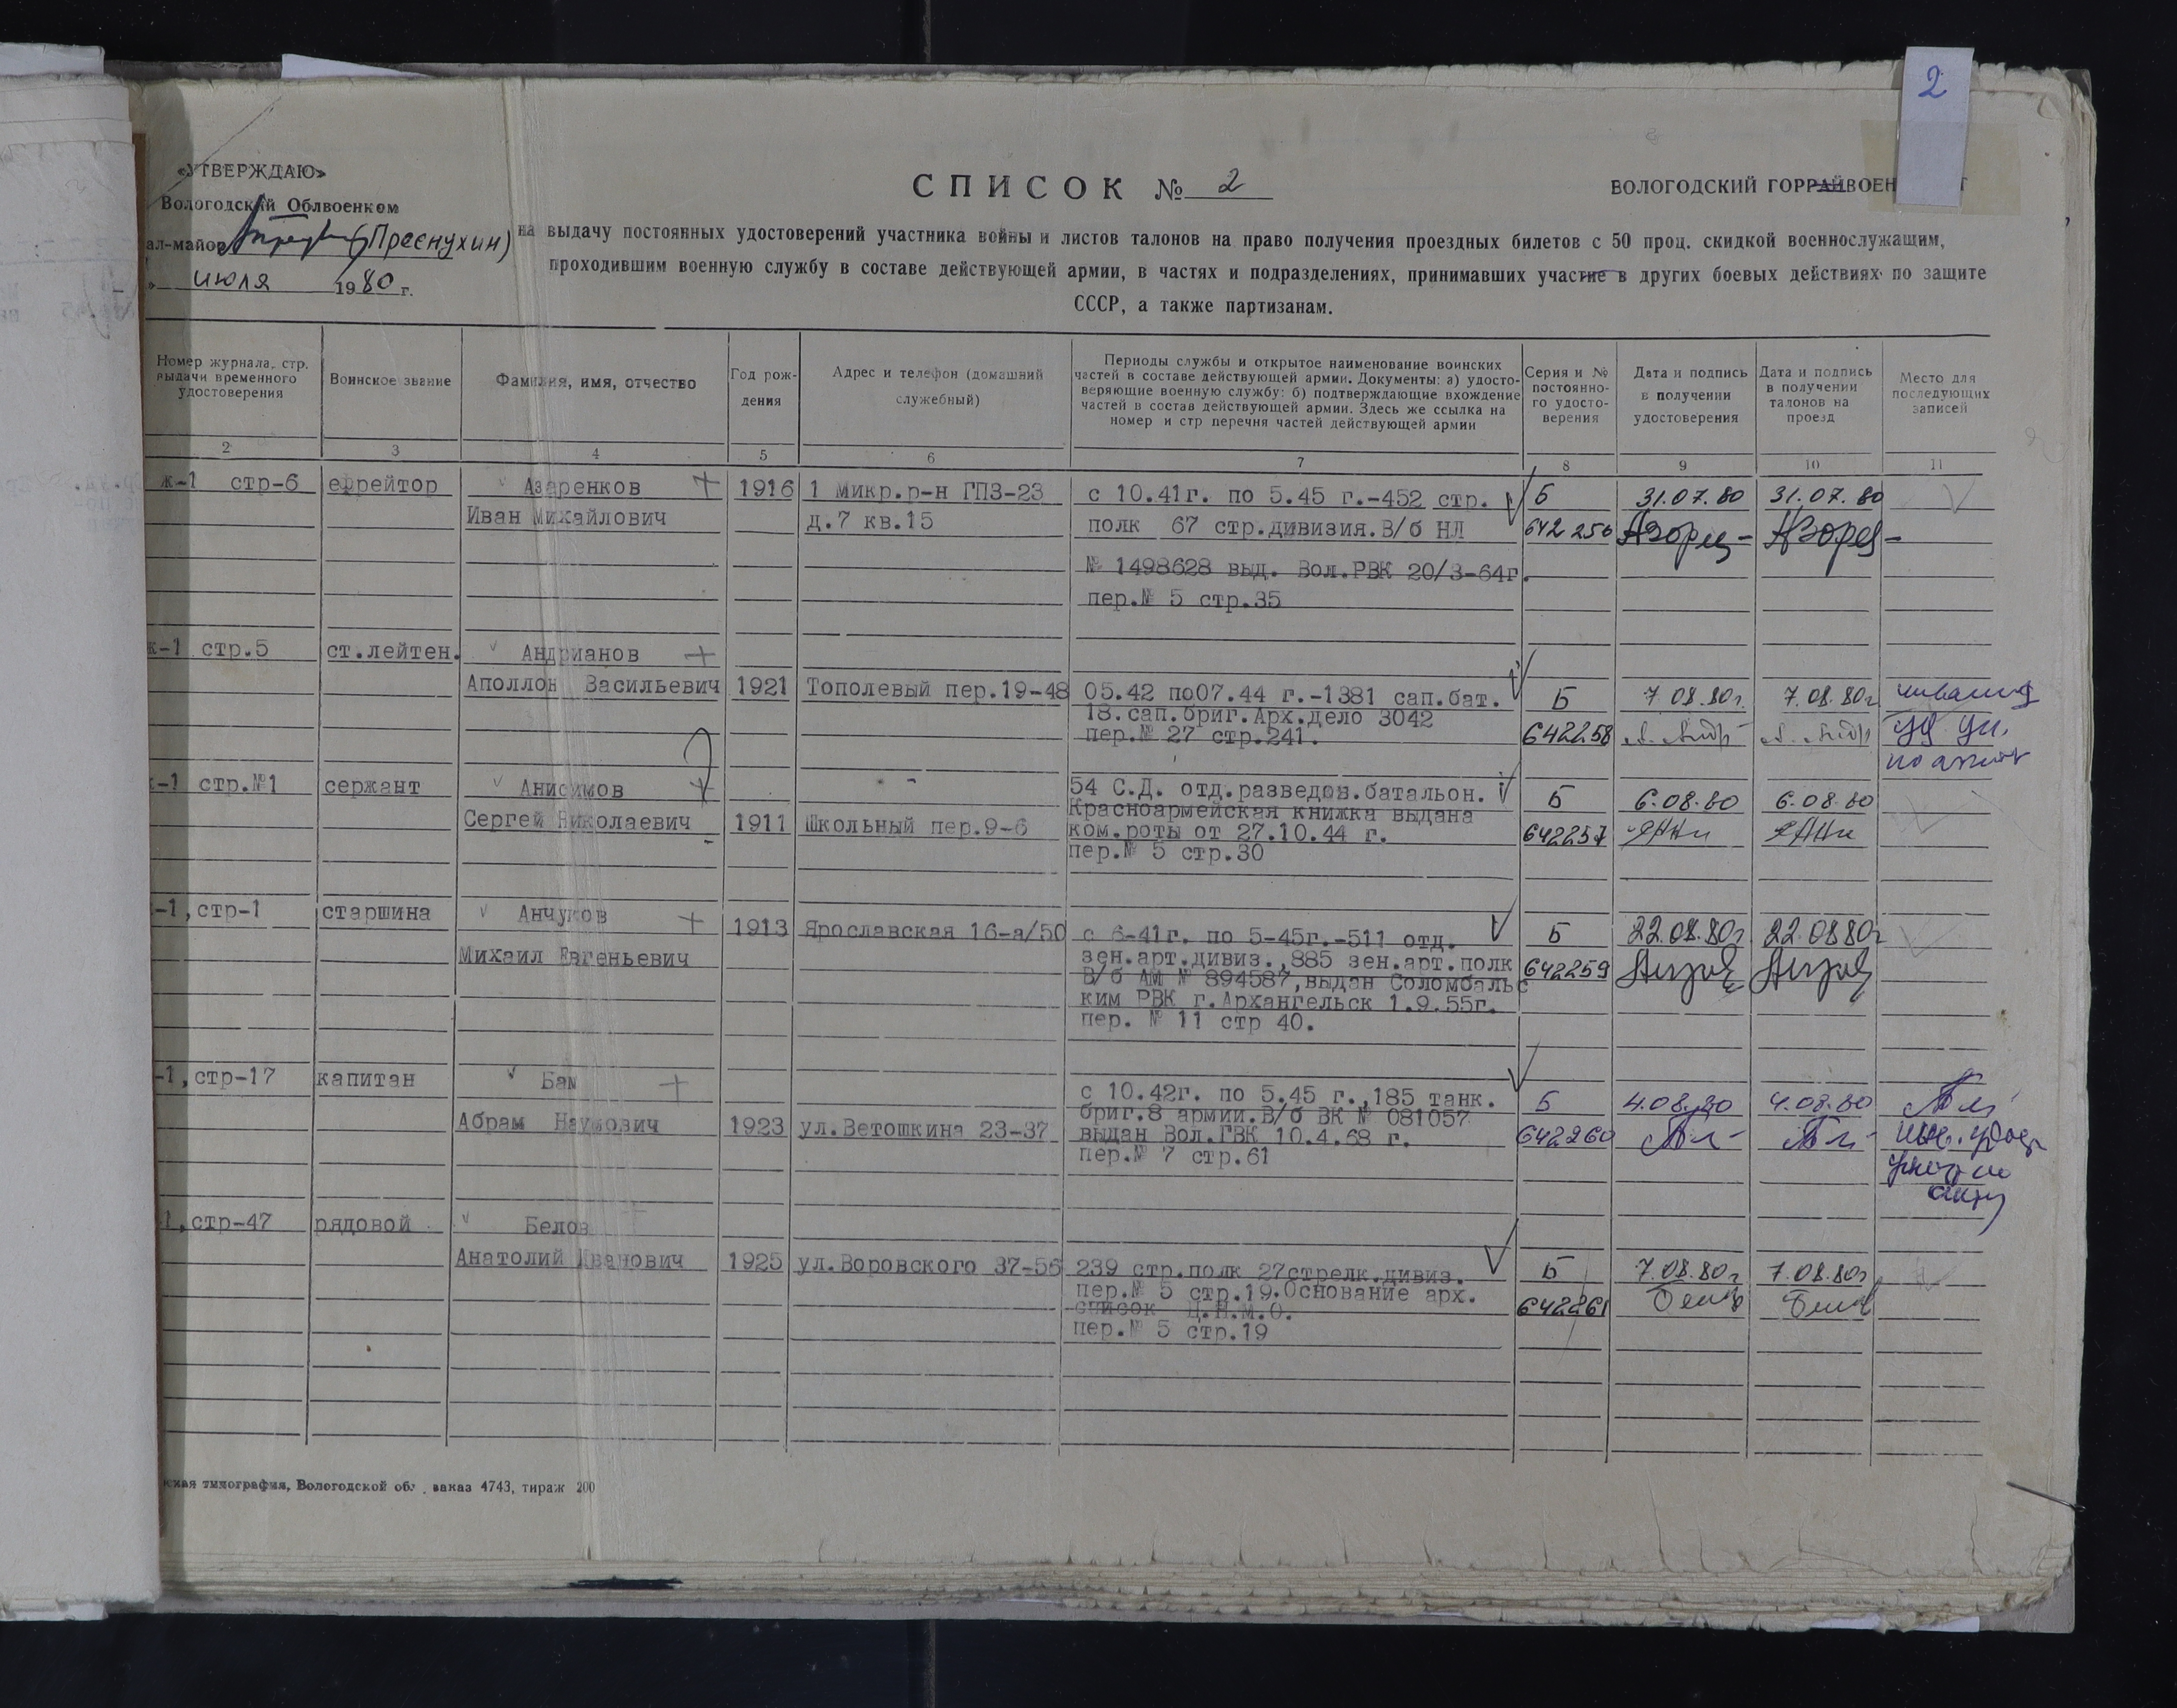 2
«УТВЕРЖДАЮ»
Вологодский Облвоенком
ал-майор (Преснухин)
" июля 1980 г.
СПИСОК № 2
ВОЛОГОДСКИЙ ГОРРАЙВОЕН Т
на выдачу постоянных удостоверений участника войны и листов талонов на право получения проездных билетов с 50 проц. скидкой военнослужащим,
проходившим военную службу в составе действующей армии, в частях и подразделениях, принимавших участие в других боевых действиях по защите
СССР, а также партизанам.
Номер журнала, стр. выдачи временного удостоверения
Воинское звание
Фамилия, имя, отчество
Год рож-
дения
Адрес и телефон (домашний
служебный)
Периоды службы и открытое наименование воинских
частей в составе действующей армии. Документы: а) удосто-
веряющие военную службу: б) подтверждающие вхождение
частей в состав действующей армии. Здесь же ссылка на
номер и стр перечня частей действующей армии
Серия и №
постоянно-
го удосто-
верения
Дата и подпись
в получении
удостоверения
Дата и подпись
в получении
талонов на
проезд
Место для
последующих
записей
2 3 4 5 6 7 8 9 10 11
ж-1 стр-6 ефрейтор Азаренков + 1916 1 микр.р-н ГПЗ-23 с 10.41г. по 5.45 г.-452 стр. Б 31.07.80 31.07.80
Иван Михайлович д.7 кв.15 полк 67 стр.дивизия.В/б НЛ 642256
№ 1498628 выд. Вол.РВК 20/3-64г.
пер.№ 5 стр.35
ж-1 стр.5 ст.лейтен. Андрианов +
Аполлон Васильевич 1921 Тополевый пер.19-48 05.42 по07.44 г.-1381 сап.бат. Б 7.08.80г. 7.08.80г
18.сап.бриг.Арх.дело 3042
пер.№ 27 стр.241. 642258
-1 стр.№1 сержант Анисимов + 54 С.Д. отд.разведов.батальон. Б 6.08.80 6.08.80
Красноармейская книжка выдана
Сергей Николаевич 1911 Школьный пер.9-6 ком.роты от 27.10.44 г. 642257
пер.№ 5 стр.30
-1,стр-1 старшина Анчуков + 1913 Ярославская 16-а/50 с 6-41г. по 5-45г.-511 отд. Б 22.08.80г 22.08 80г
Михаил Евгеньевич зен.арт.дивиз.,885 зен.арт.полк 642259
В/б АМ № 894587,выдан Соломбальс
ким РВК г.Архангельск 1.9.55г.
пер. № 11 стр 40.
-1,стр-17 капитан Бам +
с 10.42г. по 5.45 г.,185 танк. Б 4.08.80 4.08.80
бриг.8 армии.В/б ВК № 081057
Абрам Наумович 1923 ул.Ветошкина 23-37 выдан Вол.ГВК 10.4.68 г. 642260
пер.№ 7 стр.61
1,стр-47 рядовой Белов
Анатолий Иванович 1925 ул.Воровского 37-56 239 стр.полк 27стрелк.дивиз. Б 7.08.80г 7.08.80г
пер.№ 5 стр.19.Основание арх.
список Ц.Н.М.О. 642261
пер.№ 5 стр.19
типография, Вологодской обл. заказ 4743, тираж 200